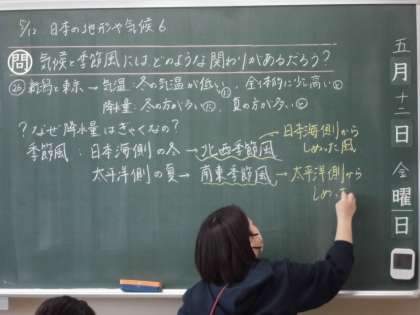 5/12 日本の地形や気候 6
問 気候と季節風にはどのような関わりがあるだろう?
新潟と東京 → 気温:冬の気温が低い 全体的に少し高い
降水量:冬の方が多い 夏の方が多い
?なぜ降水量はぎゃくなの?
季節風:日本海側の冬→北西季節風 日本海側から
しめった風
太平洋側の夏→南東季節風→太平洋側から
しめった
五月十二日 金曜日